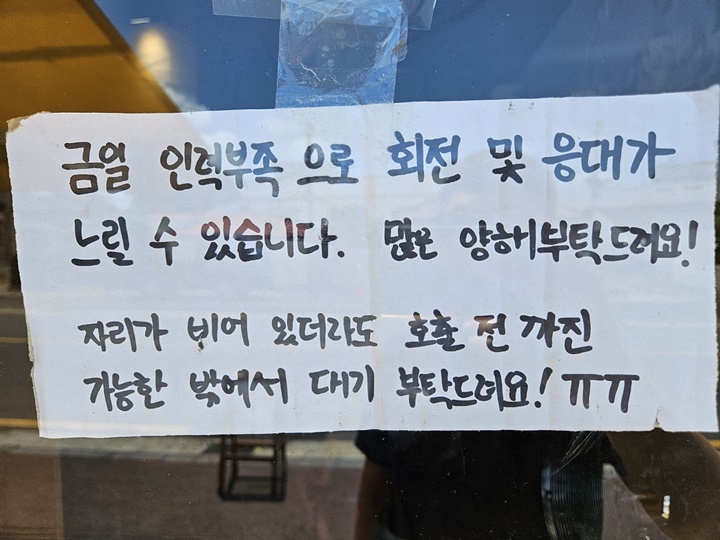 금일 인력부족 으로 회전 및 응대가
느릴 수 있습니다. 많은 양해부탁드려요!
자리가 비어 있더라도 호출 전 까진
가능한 밖에서 대기 부탁드려요! ㅠㅠ